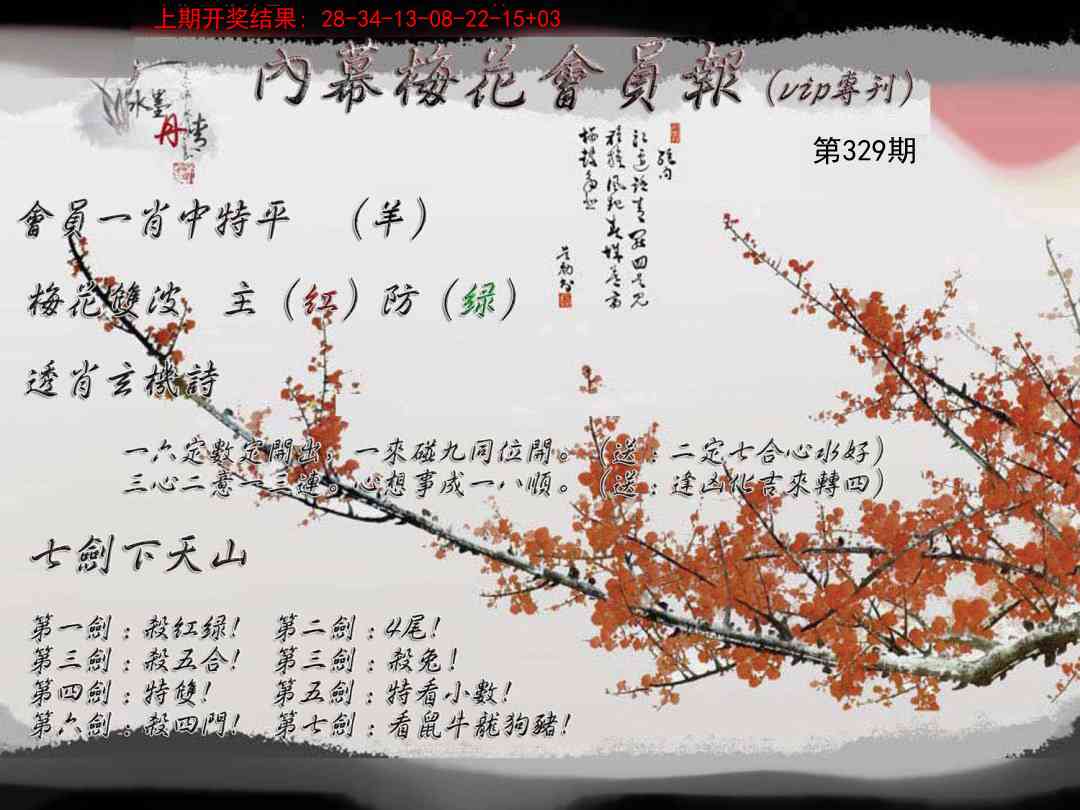 上期开奖结果: 28-34-13-08-22-15+03
內幕梅花會員報(vip專刊)
水墨丹青
第329期
會員一肖中特平 (羊)
梅花雙波 主(红)防(绿)
透肖玄機詩
一六定數定開出,一來碰九同位開。(送:二定七合心水好)
三心二意一三連。心想事成一八順。(送:逢凶化吉來轉四)
七劍下天山
第一劍:殺紅绿! 第二劍:4尾!
第三劍:殺五合! 第三劍:殺兔!
第四劍:特雙! 第五劍:特看小數!
第六劍:殺四門! 第七劍:看鼠牛龍狗豬!